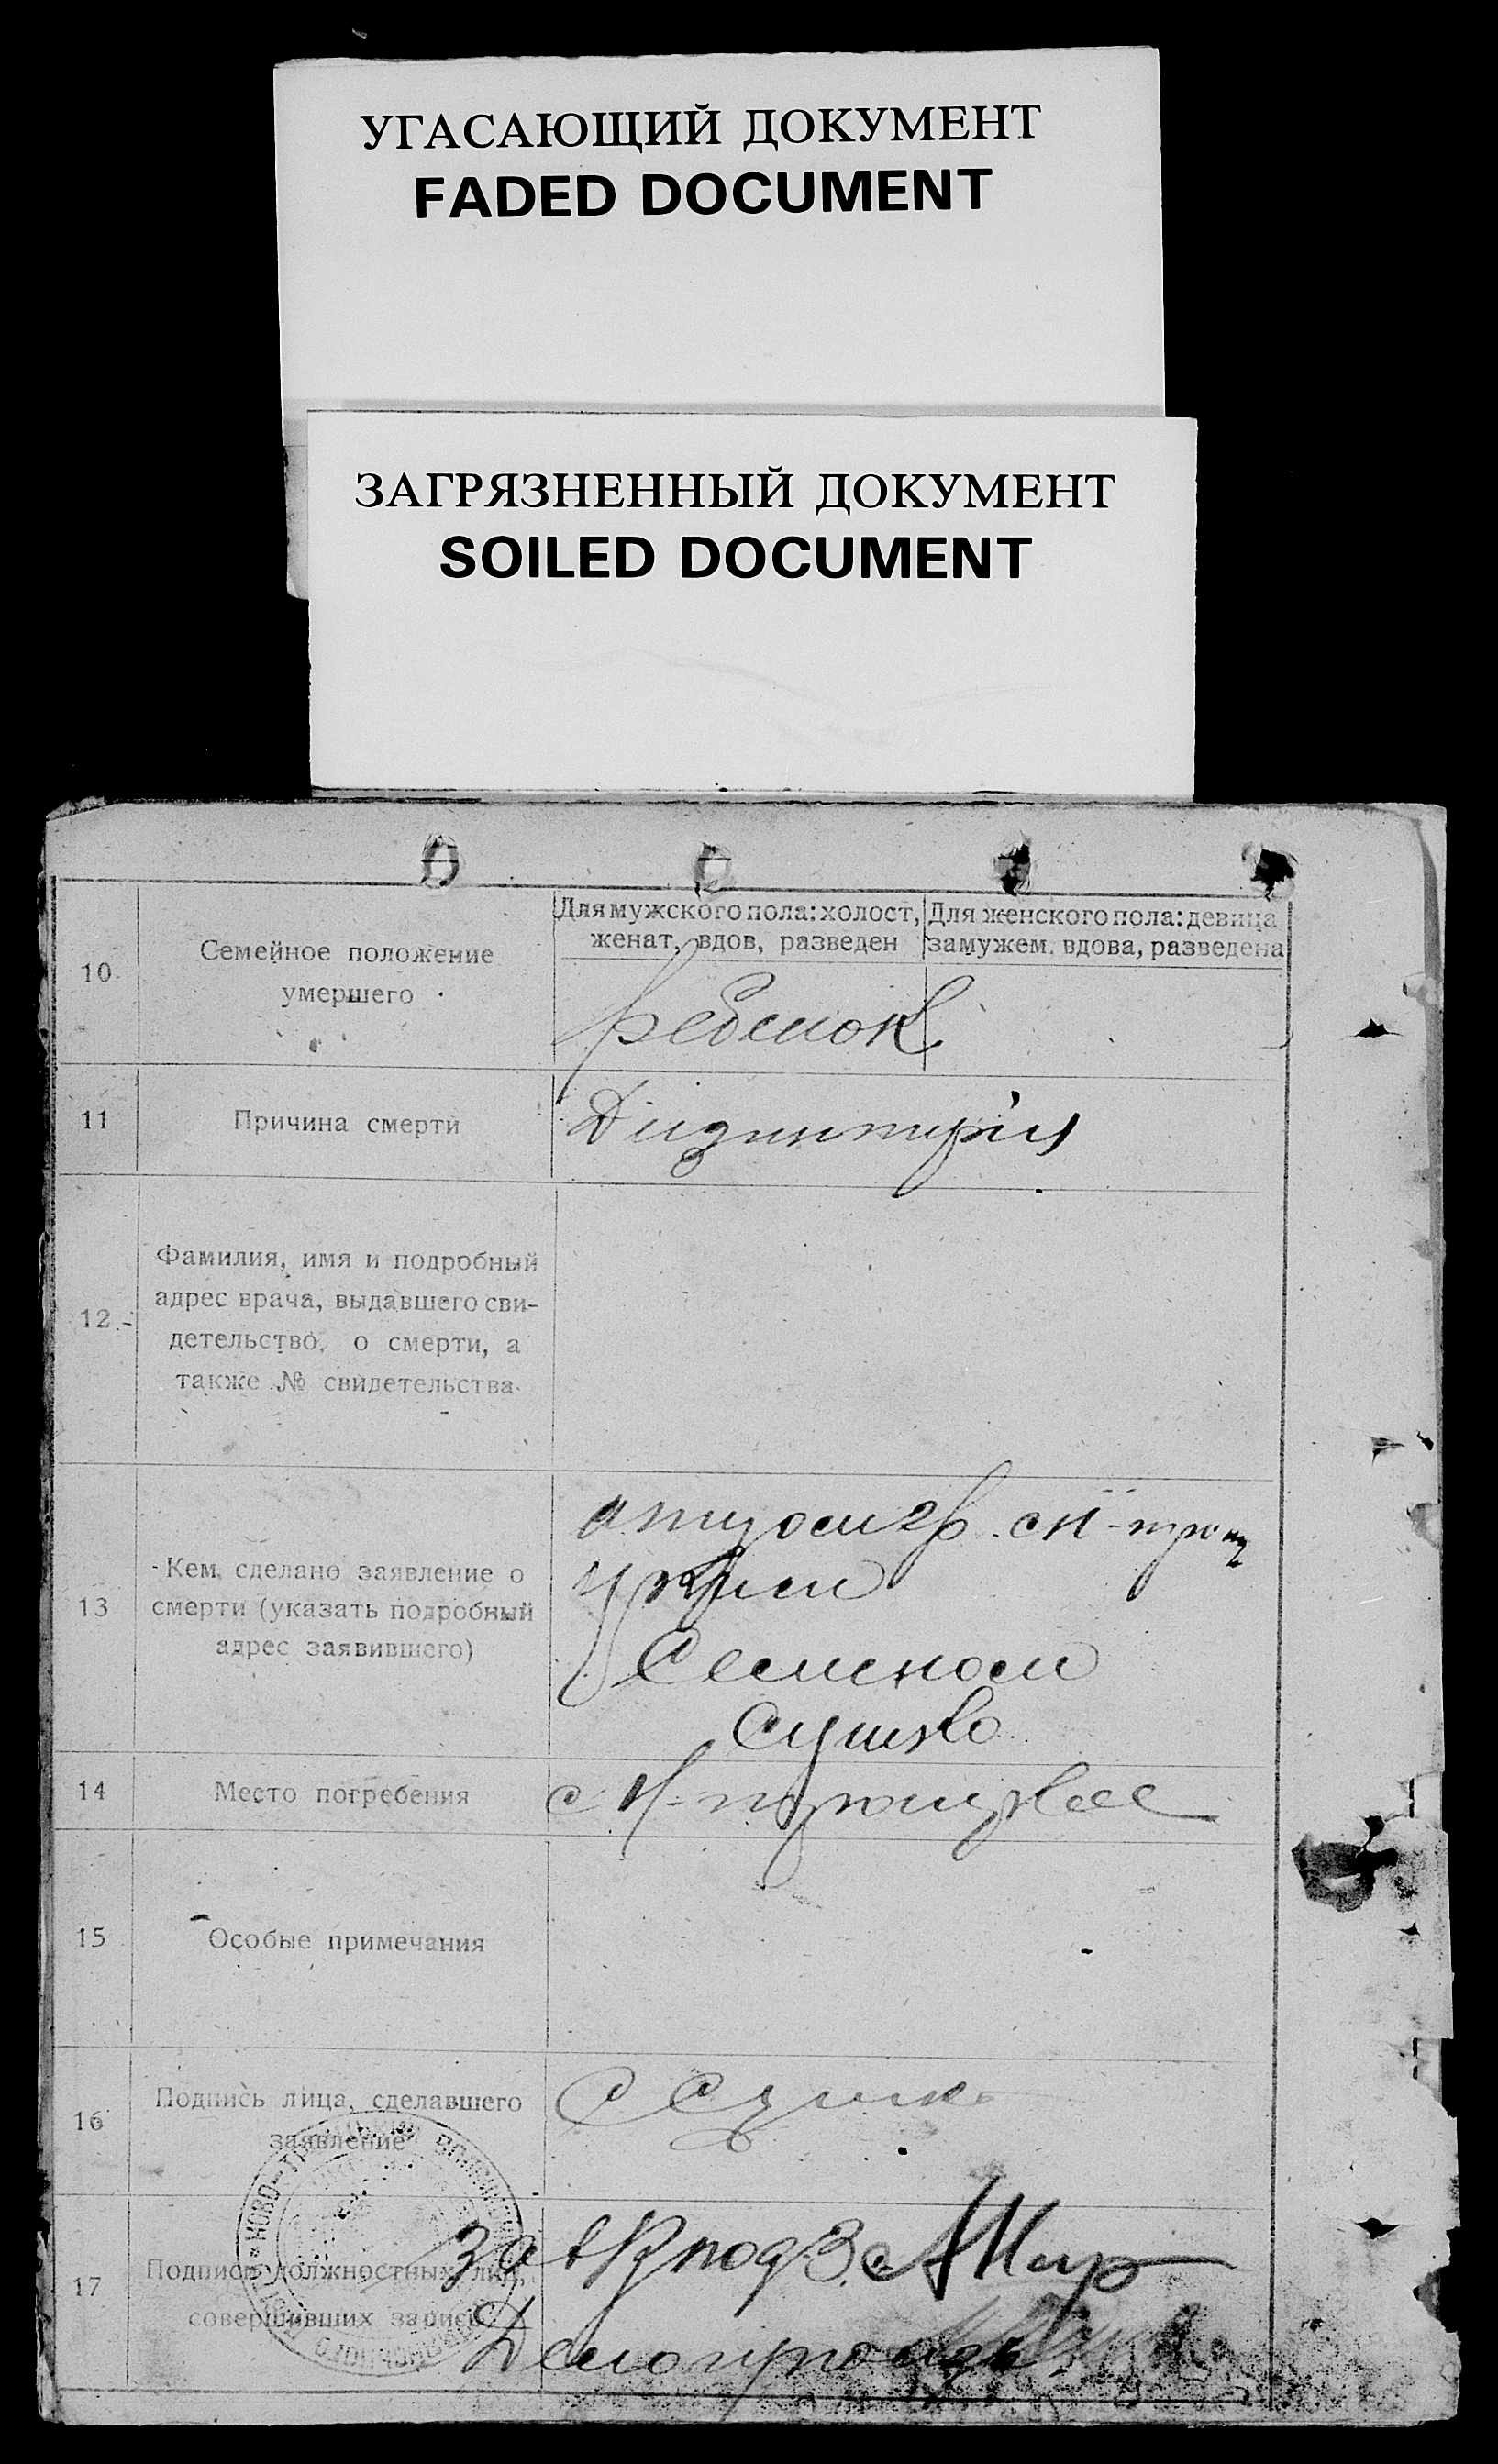 УГАСАЮЩИЙ ДОКУМЕНТ
FADED DOCUMENT
ЗАГРЯЗНЕННЫЙ ДОКУМЕНТ
SOILED DOCUMENT
10
Семейное положение
умершего
Для мужского пола: холост,
женат, вдов, разведен
Для женского пола: девица
замужем, вдова, разведена
ребенок
11
Причина смерти
12
Фамилия, имя и подробный
адрес врача, выдавшего сви-
детельство, о смерти, а
также № свидетельства
13
Кем сделано заявление о
смерти (указать подробный
адрес заявившего)
отцом гр. с Н-троиц
Семеном
Сушко
14
Место погребения
с Н-троицкое
15
Особые примечания
16
Подпись лица, сделавшего
заявление
С Сушко
17
Подписи должностных лиц,
совершивших запись
Зав
Делопроизв